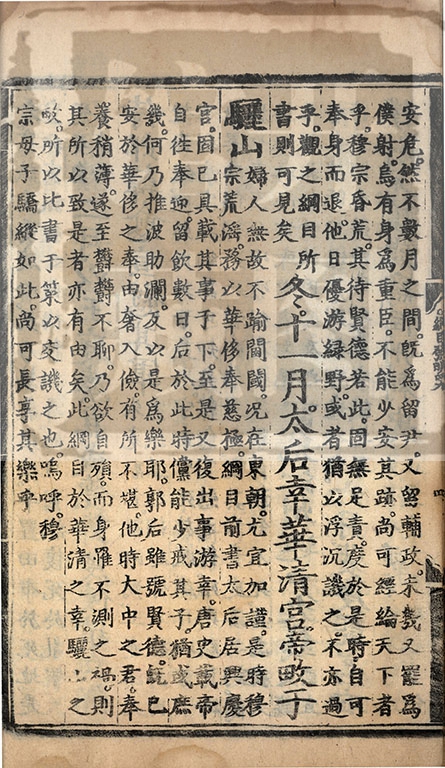 安危。然不數月之間。旣爲留尹。又留輔政。未幾又罷爲
僕射。烏有身爲重臣。不能少安其跡。尚可經綸天下者
乎。穆宗昏荒。其待賢德若此。固無足責。度於是時。自可
奉身而退。他日優游緑野。或者猶以浮沉譏之。不亦過
乎。觀之綱目所
書則可見矣
冬。十一月。太后幸華清宫。帝畋于
驪山
婦人無故不踰閫閾。况在東朝。尤宜加謹。是時穆
宗荒滛。務以華侈奉慈極。綱目前書太后居興慶
宫。固已具載其事于下。至是又復出事游幸。唐史載帝
自徃奉迎。留飲數日。后於此時。儻能少戒其子。猶或庶
幾。何乃推波助瀾。反以是爲樂耶。郭后雖號賢德。旣已
安於華侈之奉。由奢入儉。有所不堪。他時大中之君。奉
養稍薄。遂至欝欝不聊。乃欲自殞。而身罹不測之禍。則
其所以致是者。亦有由矣。此綱目於華清之幸。驪山之
畋。所以比書于策。以交譏之也。嗚呼。穆
宗母子驕縱如此。尚可長享其樂乎